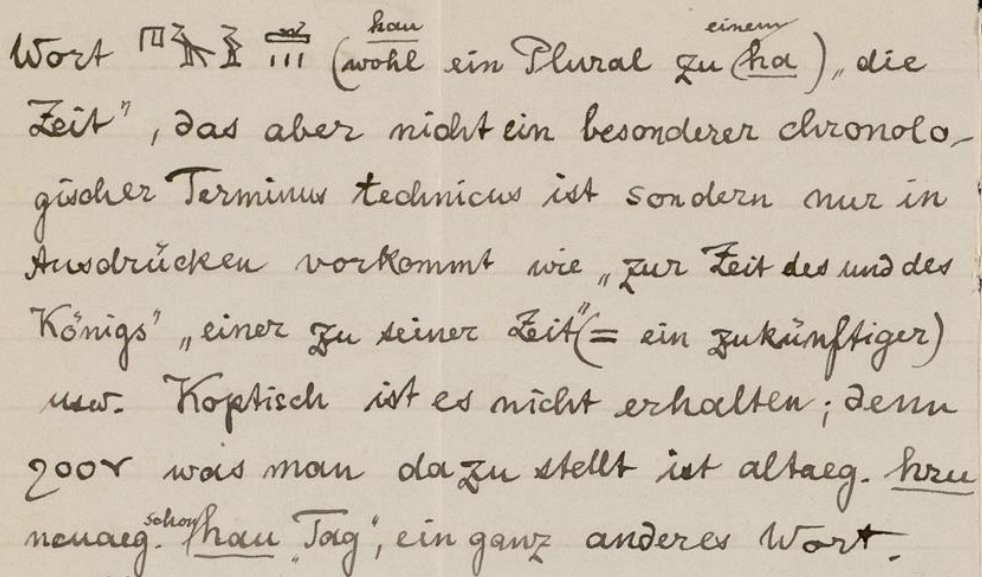 Wort (wohl hau ein Plural zu einem ha) „die
Zeit", das aber nicht ein besonderer chronolo-
gischer Terminus technicus ist sondern nur in
Ausdrücken vorkommt wie „zur Zeit des und des
Königs' „einer zu seiner Zeit" (= ein zukünftiger)
usw. Koptisch ist es nicht erhalten; denn
ϩⲟⲟⲩ was man dazu stellt ist altaeg. hru
neuaeg. schon hau „Tag", ein ganz anderes Wort.